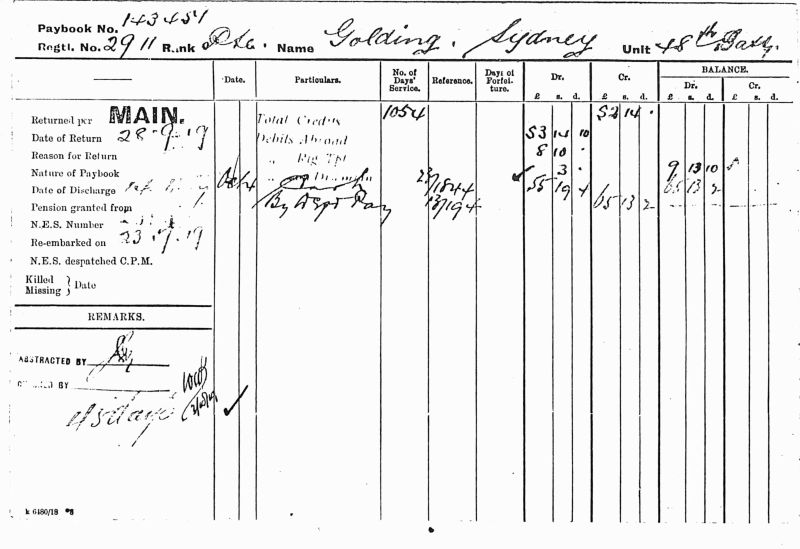 Paybook No. 143454
Regtl. No. 2911 Rank Pte. Name Golding. Sydney Unit 48th Batt.
Date. Particulars. No. of Days' Service. Reference. Days of Forfeiture. Dr. Cr. BALANCE.
Dr. Cr.
£ s. d. £ s. d. £ s. d. £ s. d.
Returned per MAIN. Total Credits 1054 52 14 .
Date of Return 28-9-19 Debits Abroad 53 14 10
Reason for Return " 8 10 .
Nature of Paybook " 3 . 9 13 10
Date of Discharge Oct 4 Cash 23/1844 55 19 4 65 13 2
Pension granted from By Dept Pay 13/194 65 13 2
N.E.S. Number
Re-embarked on 23.9.19
N.E.S. despatched C.P.M.
Killed
Missing } Date
REMARKS.
ABSTRACTED BY
BY
k 6480/18